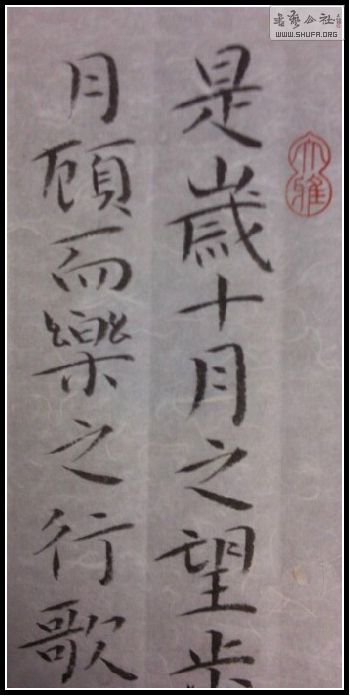 是歲十月之望步
月顧而樂之行歌
大雅
書藝公社
WWW.SHUFA.ORG